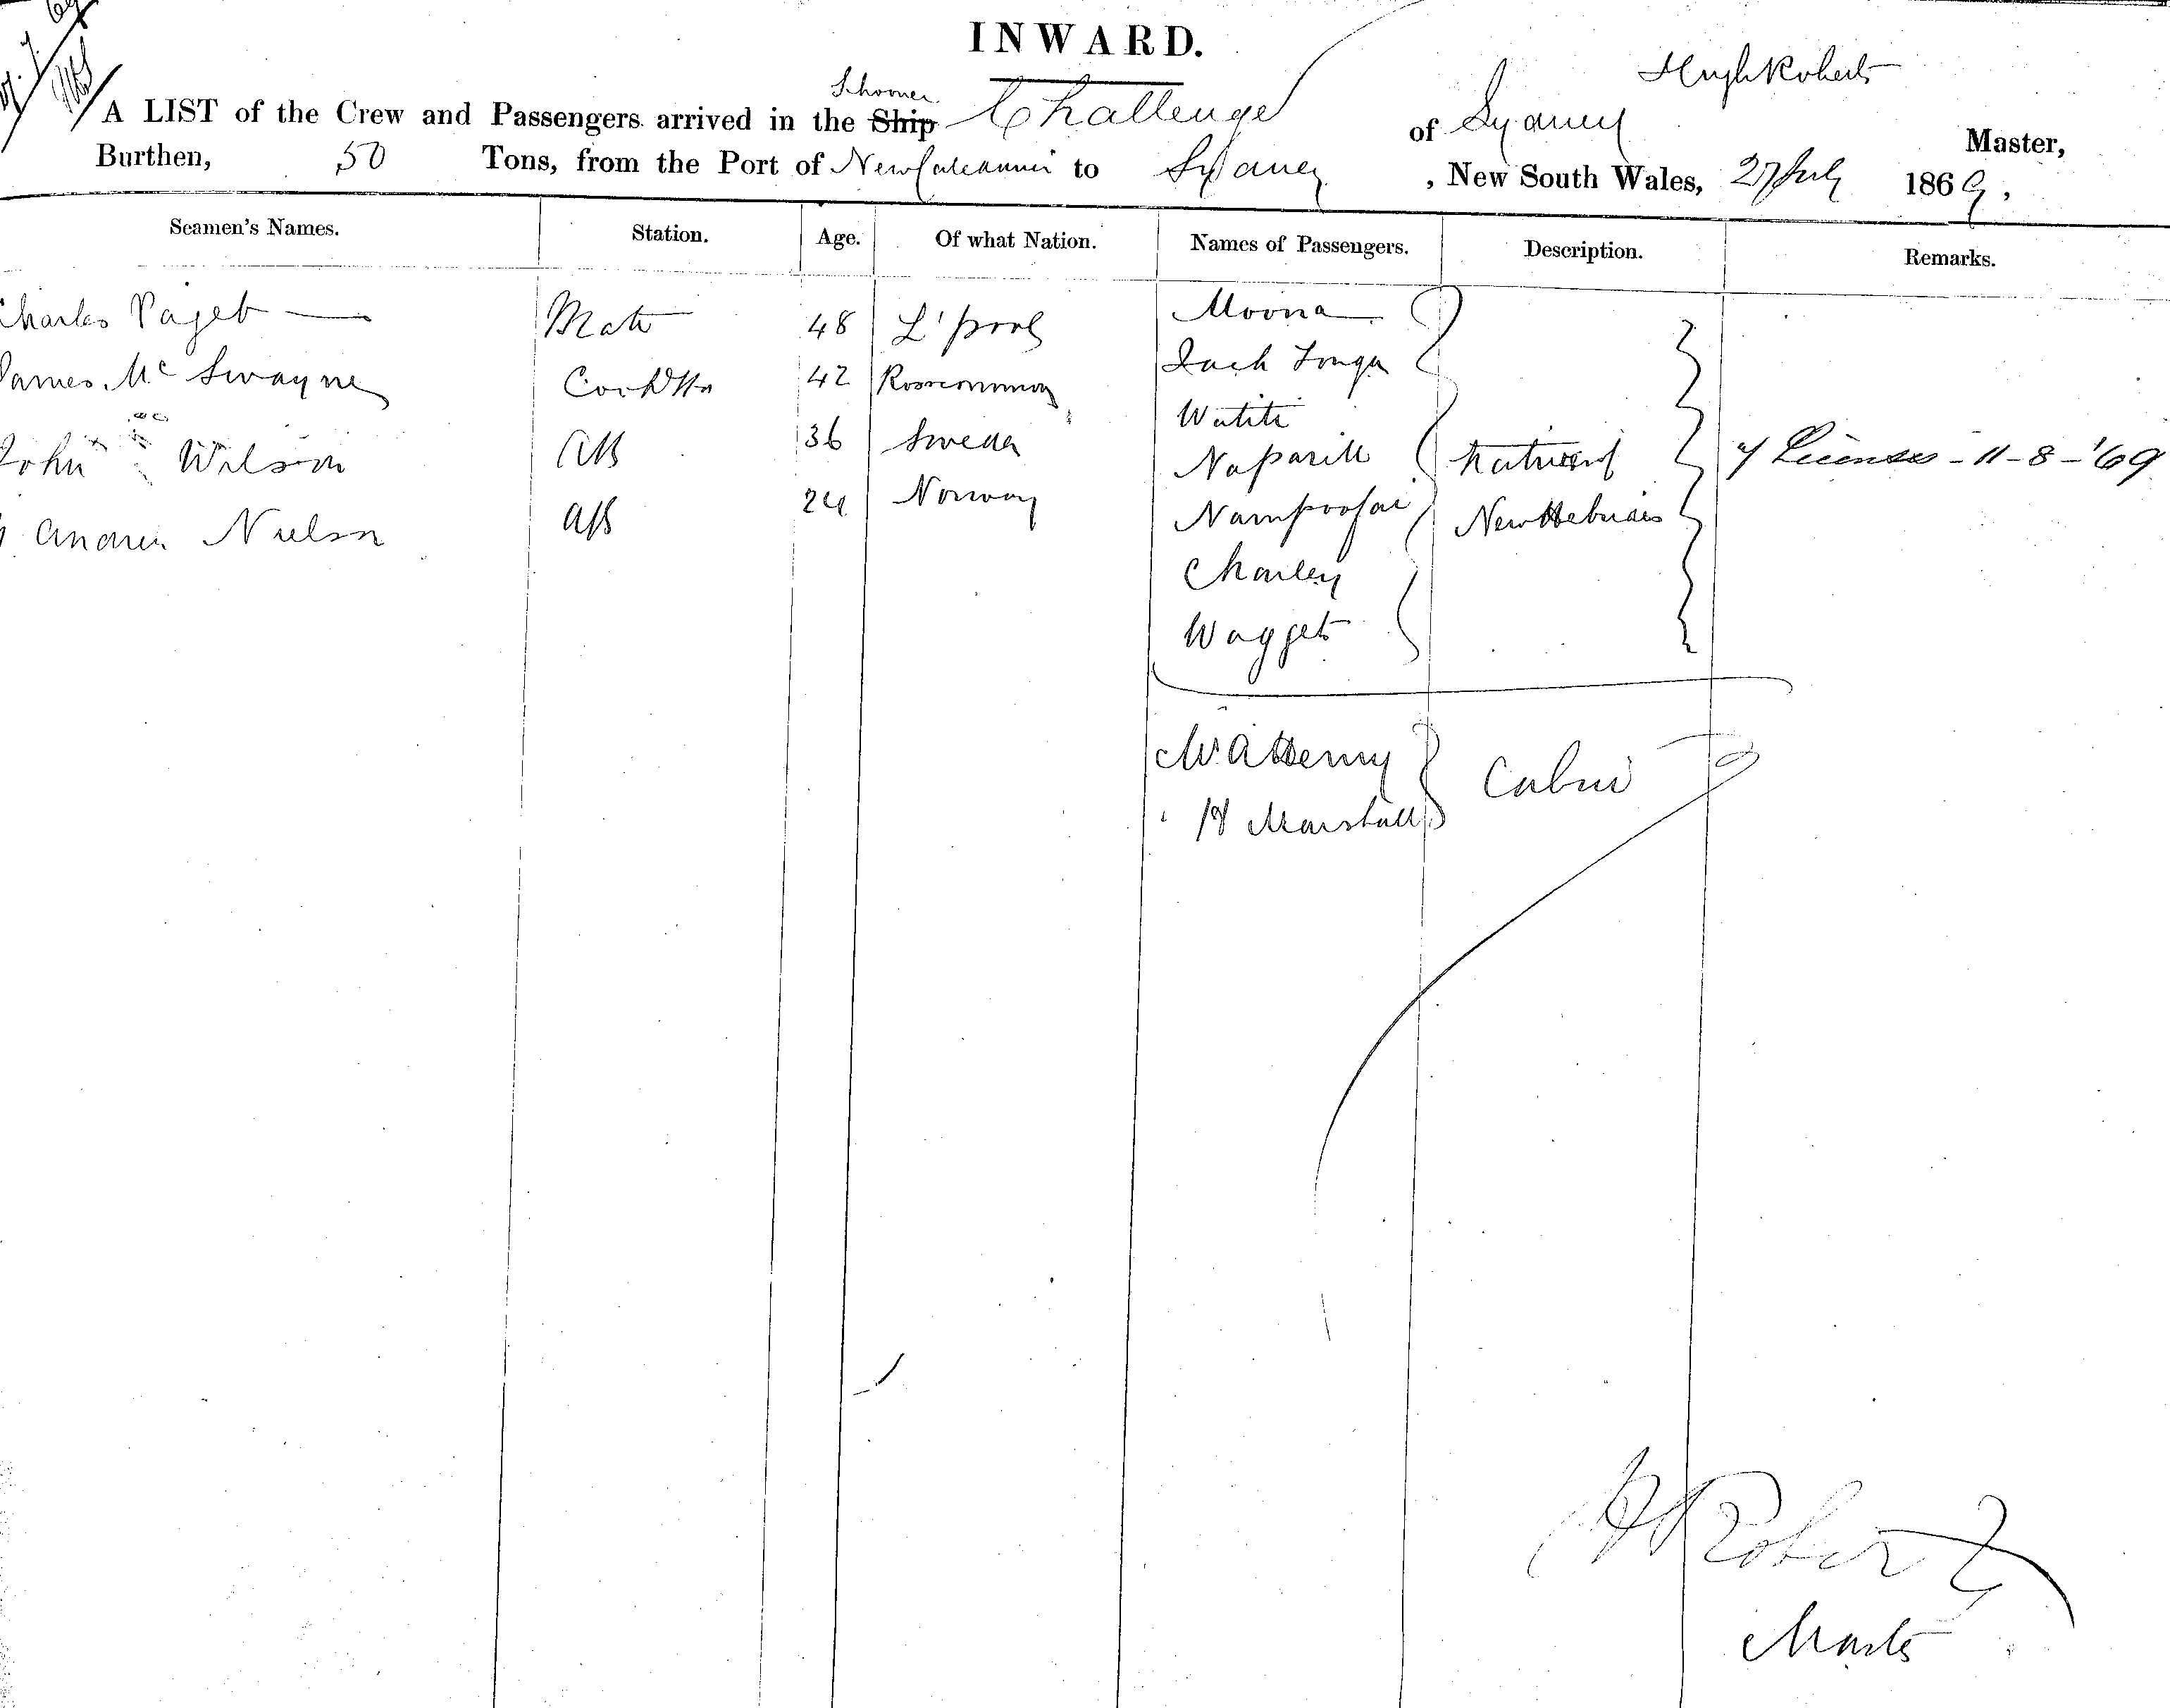 INWARD.
Hugh Roberts
Schooner
A LIST of the Crew and Passengers arrived in the Ship Challenge of Sydney Master,
Burthen, 50 Tons, from the Port of New Caledonia to Sydney, New South Wales, 27 July 1869,
Seamen's Names. Station. Age. Of what Nation. Names of Passengers. Description. Remarks.
Charles Paget Mate 48 L'pool Moona
James McSwayne Cook 42 Roscommon Jack Tonga
Watiti
John Wilson AB 36 Sweden Naparill Natives of License - 11-8-'69
Nielson AB 24 Norway New Hebrides
Charley
Wagget
Mr A Berry Cabin
" H Marshall
H Roberts
Master